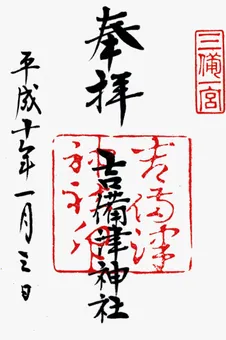 三備一宮
奉拝
吉備津神社
吉備津
神社印
平成十年一月三日